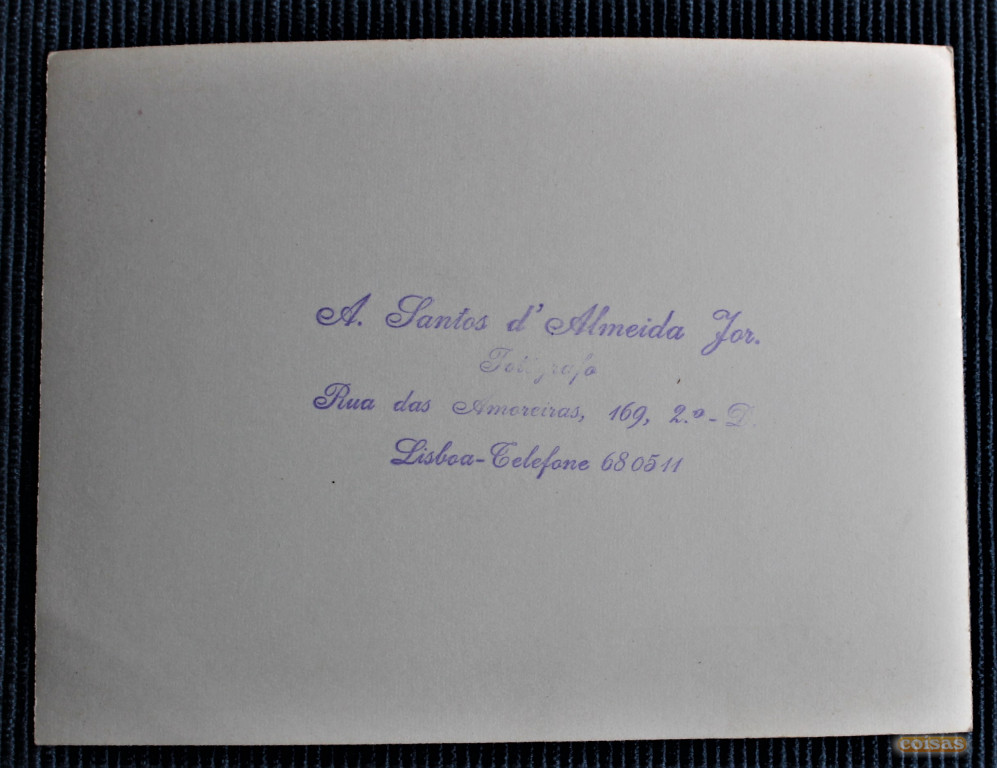 A. Santos d'Almeida Jor.
Fotógrafo
Rua das Amoreiras, 169, 2.º - D.
Lisboa-Telefone 680511
coisas